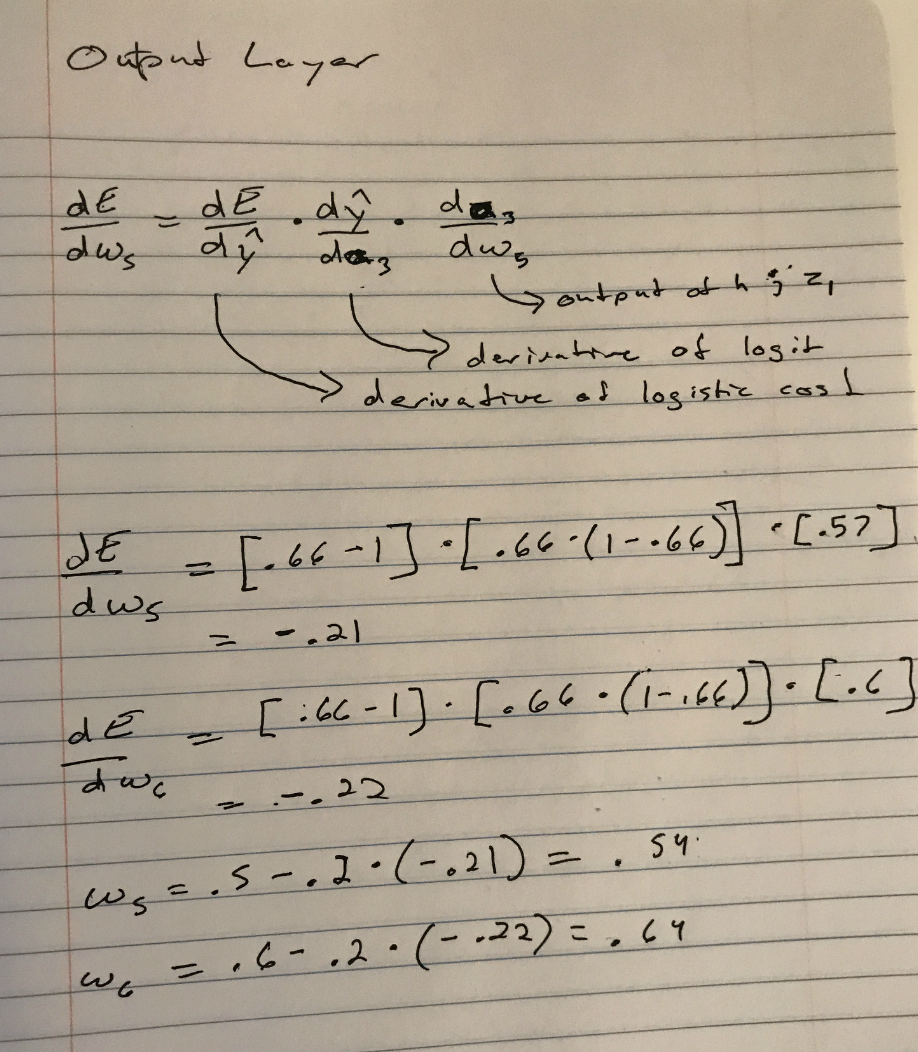 Output Layer
dE/dw₅ = dE/dŷ · dŷ/da₃ · da₃/dw₅
output of h ; z₁
derivative of logit
derivative of logistic cost
dE/dw₅ = [.66 - 1] · [.66 · (1 - .66)] · [.57]
= -.21
dE/dw₆ = [.66 - 1] · [.66 · (1 - .66)] · [.6]
= -.22
w₅ = .5 - .2 · (-.21) = .54
w₆ = .6 - .2 · (-.22) = .64